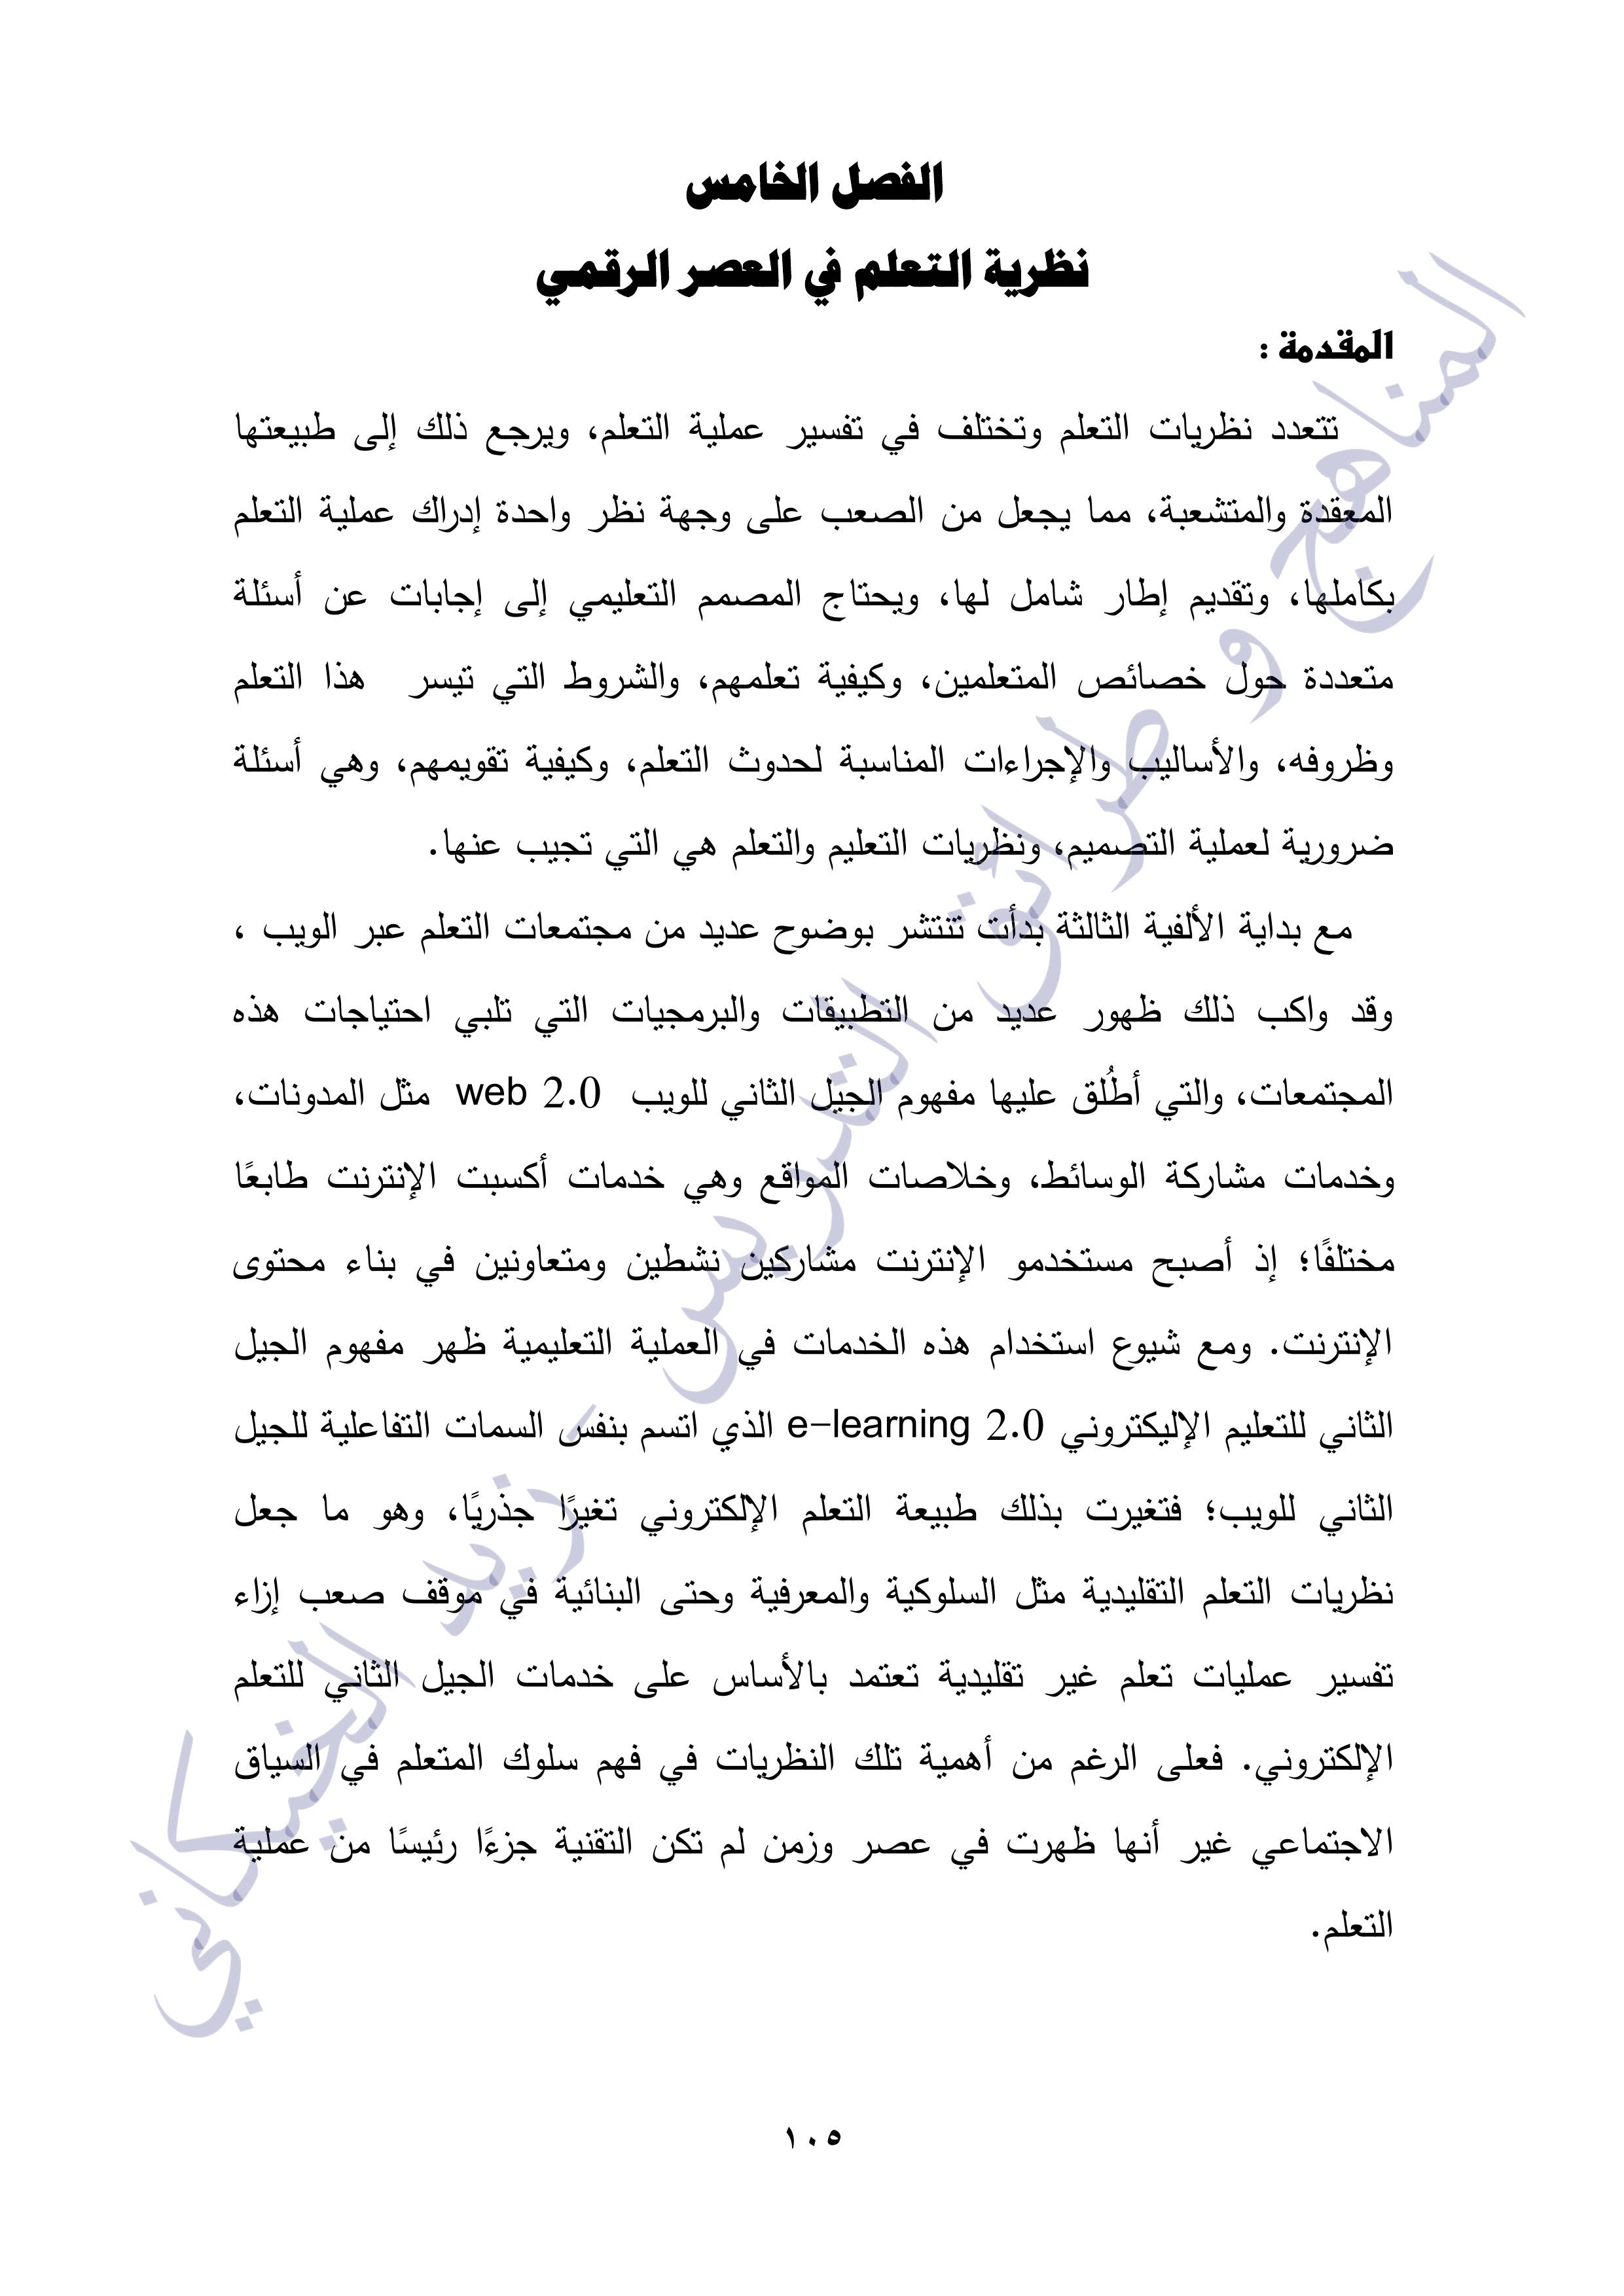 الفصل الخامس
نظرية التعلم في العصر الرقمي
المقدمة :
تتعدد نظريات التعلم وتختلف في تفسير عملية التعلم، ويرجع ذلك إلى طبيعتها
المعقدة والمتشعبة، مما يجعل من الصعب على وجهة نظر واحدة إدراك عملية التعلم
بكاملها، وتقديم إطار شامل لها، ويحتاج المصمم التعليمي إلى إجابات عن أسئلة
متعددة حول خصائص المتعلمين، وكيفية تعلمهم، والشروط التي تيسر هذا التعلم
وظروفه، والأساليب والإجراءات المناسبة لحدوث التعلم، وكيفية تقويمهم، وهي أسئلة
ضرورية لعملية التصميم، ونظريات التعليم والتعلم هي التي تجيب عنها.
مع بداية الألفية الثالثة بدأت تنتشر بوضوح عديد من مجتمعات التعلم عبر الويب ،
وقد واكب ذلك ظهور عديد من التطبيقات والبرمجيات التي تلبي احتياجات هذه
المجتمعات، والتي أطُلق عليها مفهوم الجيل الثاني للويب web 2.0 مثل المدونات،
وخدمات مشاركة الوسائط، وخلاصات المواقع وهي خدمات أكسبت الإنترنت طابعًا
مختلفًا؛ إذ أصبح مستخدمو الإنترنت مشاركين نشطين ومتعاونين في بناء محتوى
الإنترنت. ومع شيوع استخدام هذه الخدمات في العملية التعليمية ظهر مفهوم الجيل
الثاني للتعليم الإليكتروني e-learning 2.0 الذي اتسم بنفس السمات التفاعلية للجيل
الثاني للويب؛ فتغيرت بذلك طبيعة التعلم الإلكتروني تغيرًا جذريًا، وهو ما جعل
نظريات التعلم التقليدية مثل السلوكية والمعرفية وحتى البنائية في موقف صعب إزاء
تفسير عمليات تعلم غير تقليدية تعتمد بالأساس على خدمات الجيل الثاني للتعلم
الإلكتروني. فعلى الرغم من أهمية تلك النظريات في فهم سلوك المتعلم في السياق
الاجتماعي غير أنها ظهرت في عصر وزمن لم تكن التقنية جزءًا رئيسًا من عملية
التعلم.
المناهج و طرائق التدريس - زيد الخيكاني
١٠٥